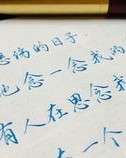 的日子.
也念一念我
有人在思念我
在一个